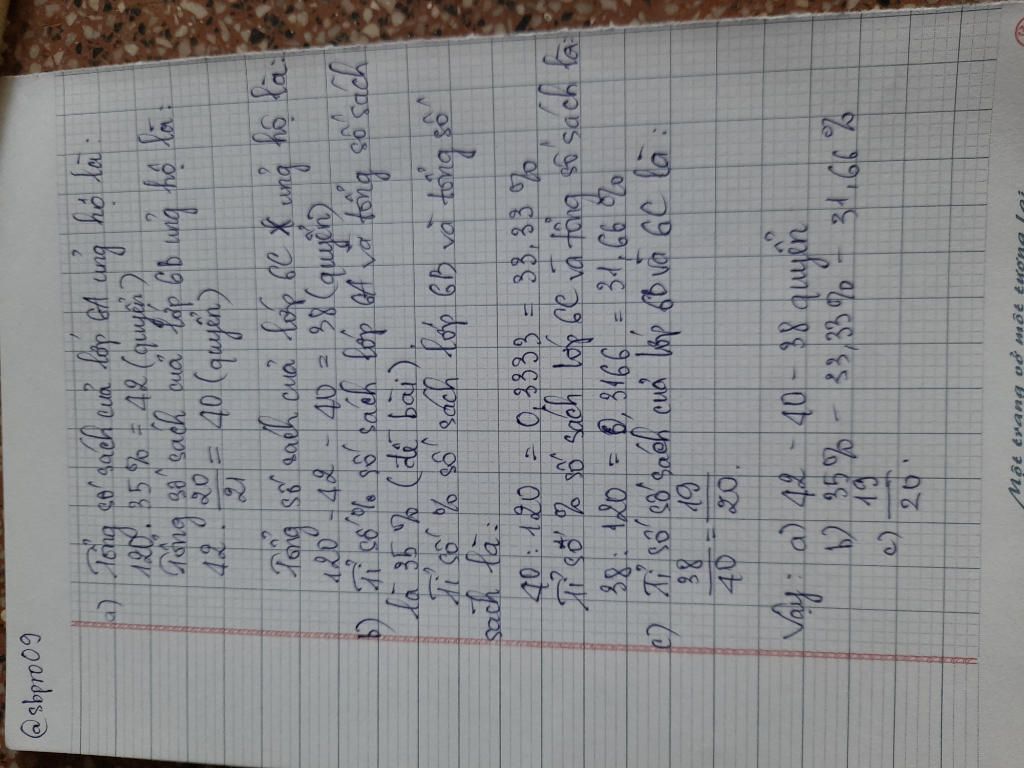 @sbpro09
a) Tổng số sách của lớp 6A ủng hộ là:
120. 35% = 42 (quyển)
Tổng số sách của lớp 6B ủng hộ là:
42. 20/21 = 40 (quyển)
Tổng số sách của lớp 6C ủng hộ là:
120 - 42 - 40 = 38 (quyển)
b) Tỉ số % số sách lớp 6A và tổng số sách
là 35% (đề bài).
Tỉ số % số sách lớp 6B và tổng số
sách là:
40 : 120 = 0,3333 = 33,33%
Tỉ số % số sách lớp 6C và tổng số sách là:
38 : 120 = 0,3166 = 31,66%
c) Tỉ số số sách của lớp 6B và 6C là:
38/40 = 19/20.
Vậy: a) 42 - 40 - 38 quyển
b) 35% - 33,33% - 31,66%
c) 19/20.
Một trang vở một tương lai